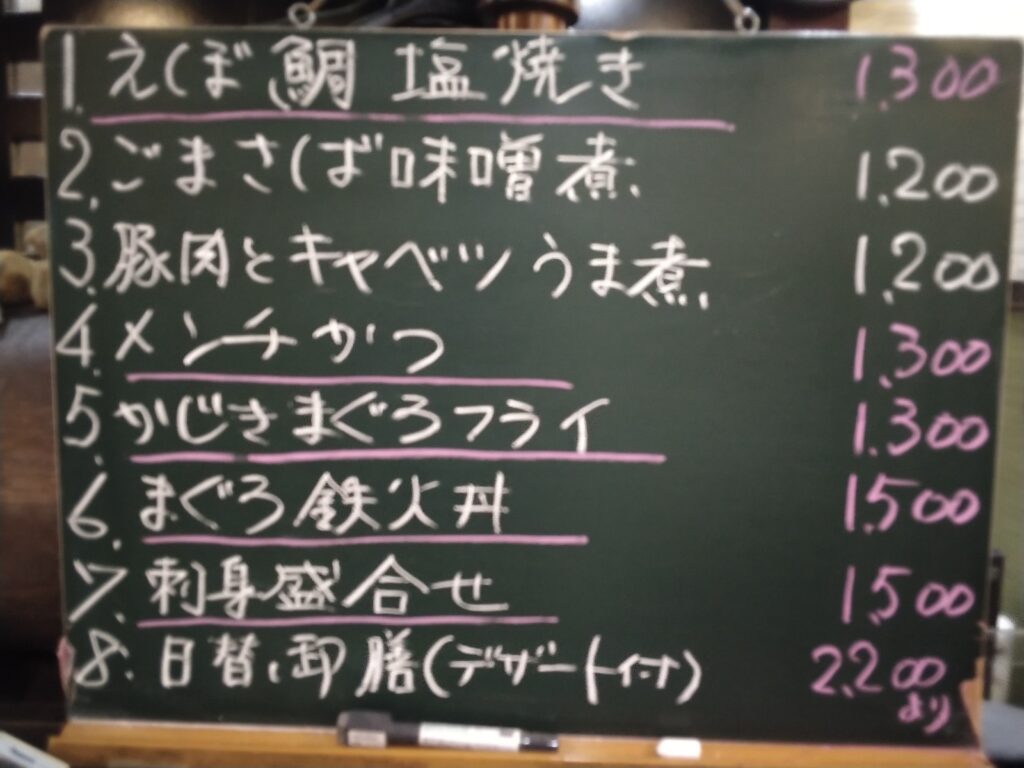 1. えぼ鯛 塩焼き 1,300
2. ごまさば味噌煮 1,200
3. 豚肉とキャベツうま煮 1,200
4. メンチかつ 1,300
5. かじきまぐろフライ 1,300
6. まぐろ鉄火丼 1,500
7. 刺身盛合せ 1,500
8. 日替り御膳(デザート付) 2,200
より